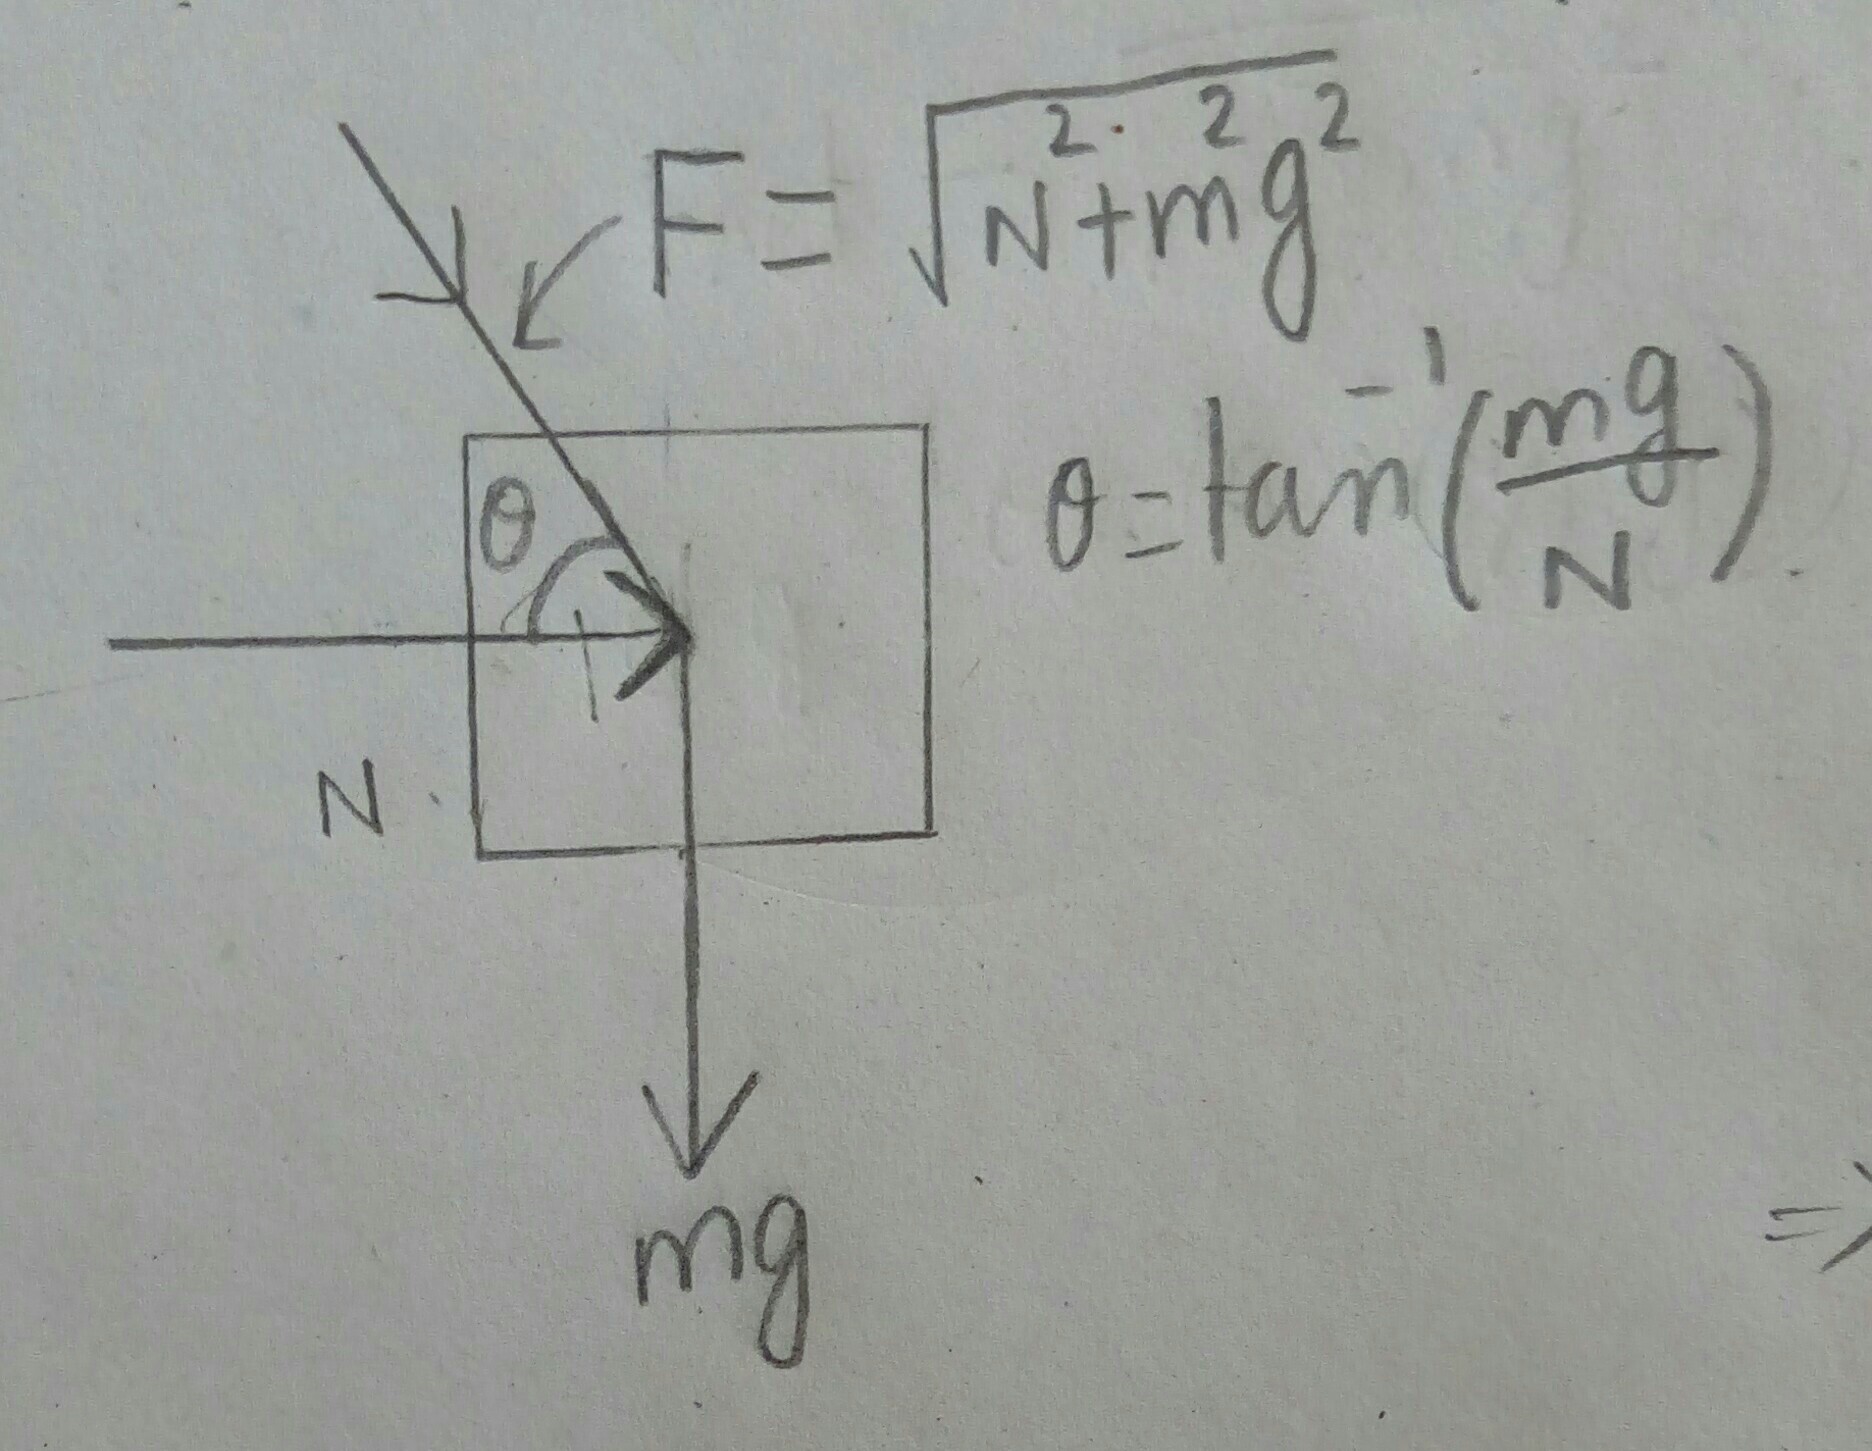 F = √N²+m²g²
θ = tan⁻¹(mg/N).
θ
N
mg
=>